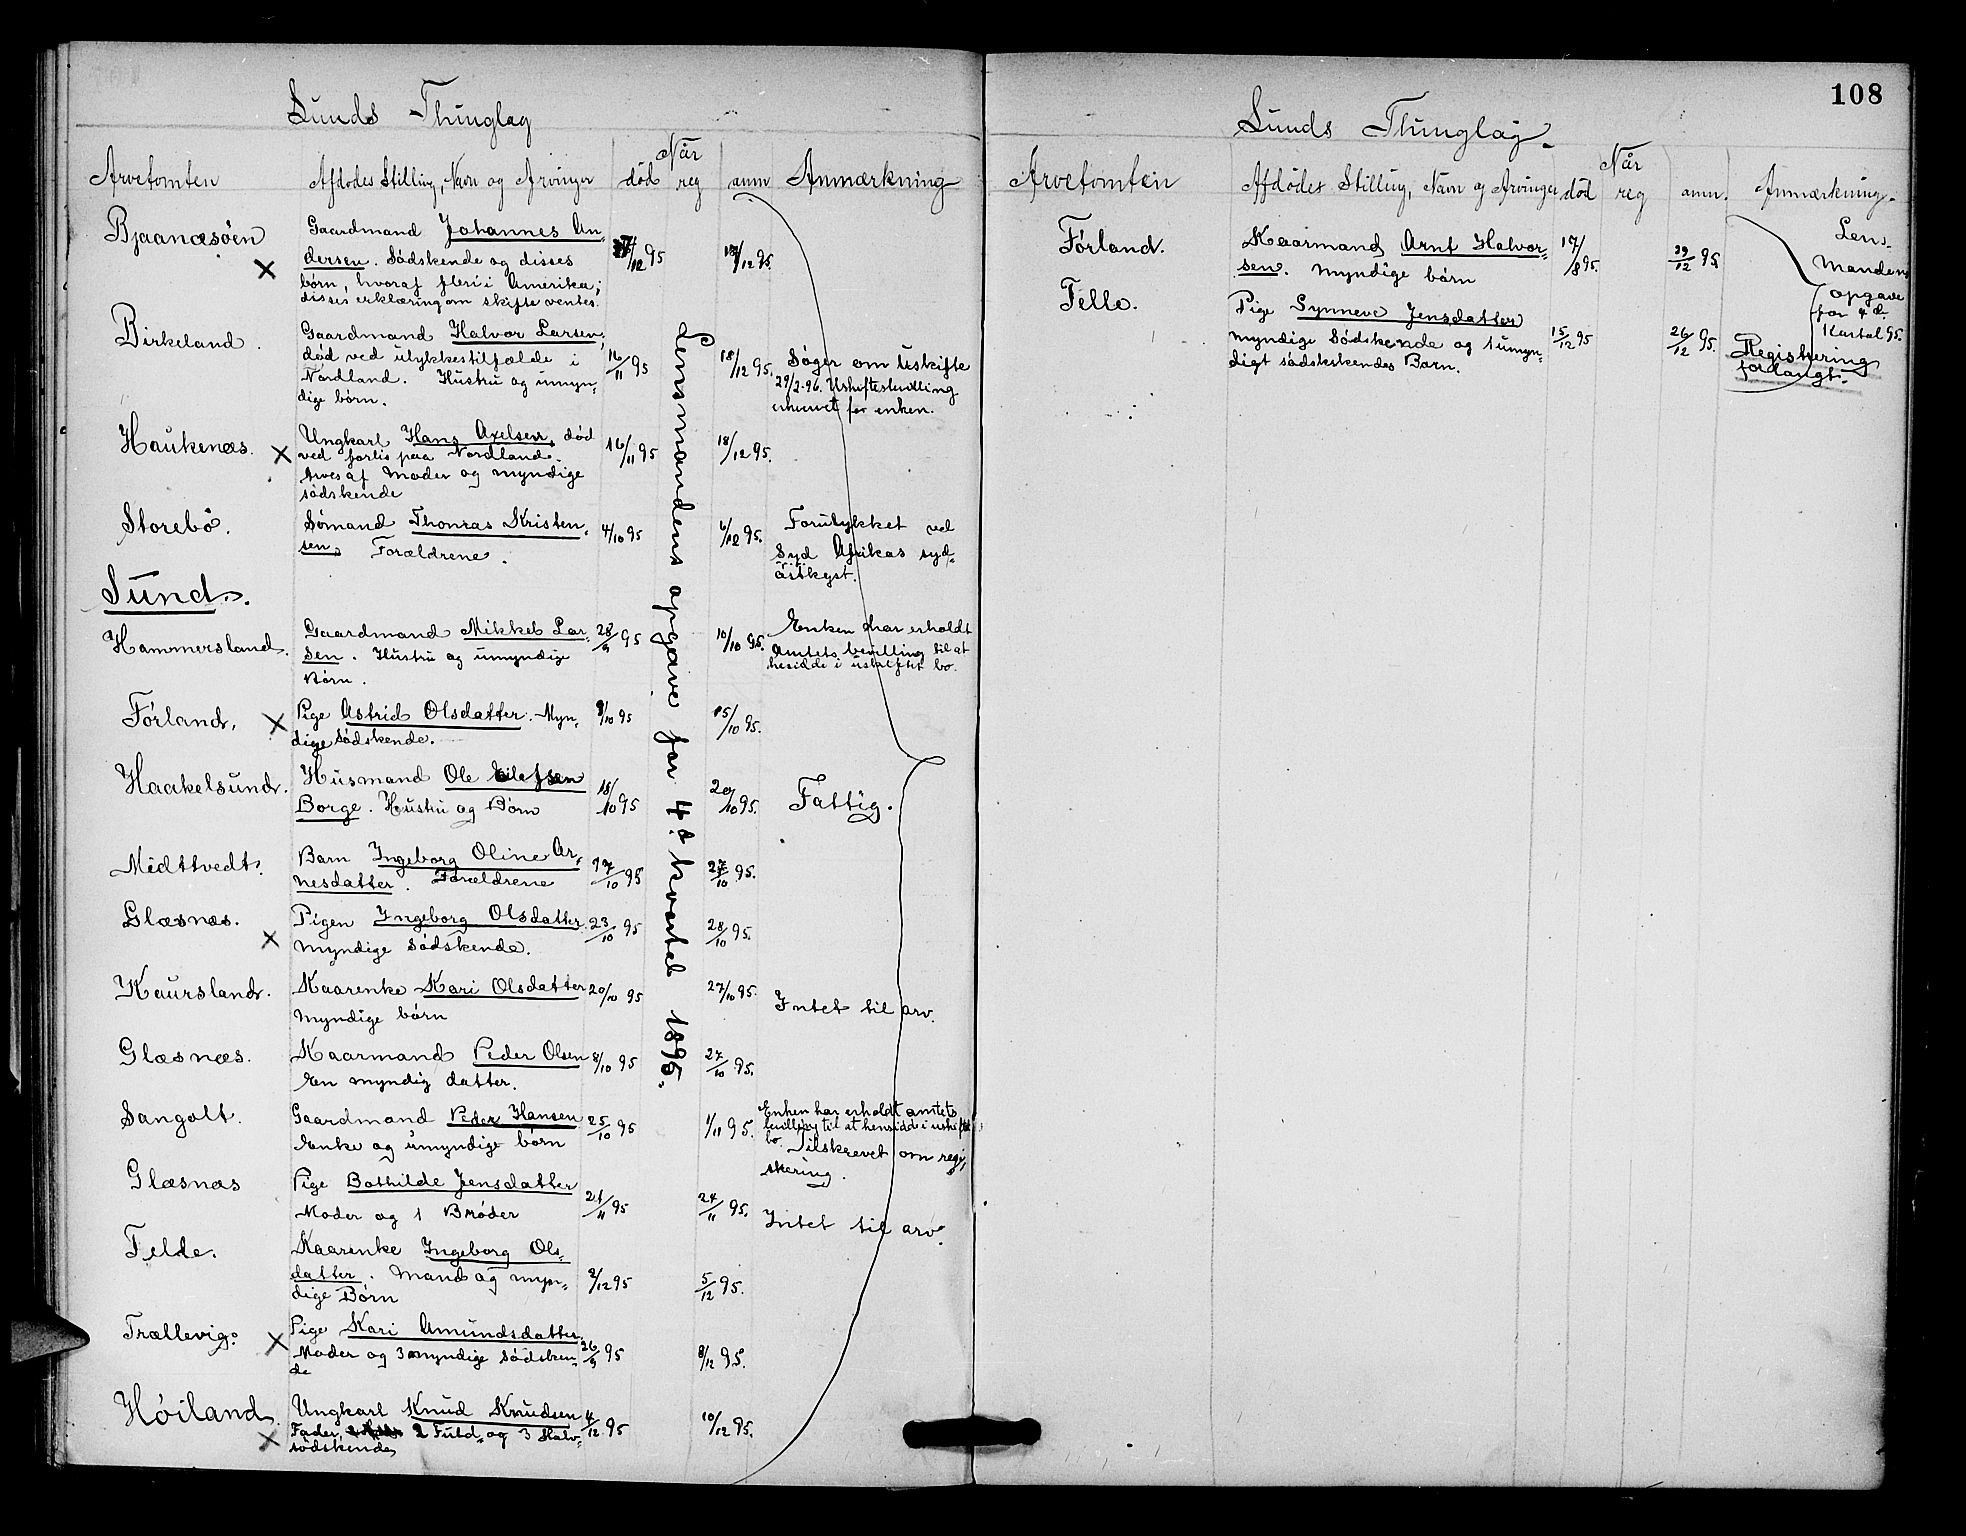 Sunds Thinglag
Når
Arvetomten Afdødes Stilling, Navn og Arvinger død reg anm Anmærkning
Bjaanæsøen Gaardmand Johannes An-
dersen. Sødskende og disses /12 95 17/12 95.
børn, hvoraf fleri i Amerika;
disses erklæring om skifte ventes.
Birkeland. Gaardmand Halvor Larsen,
død ved ulykkestilfælde i 16/11 95 18/12 95. Søger om uskifte
Nordland. Hustru og umyn- 29/2-96. Uskiftesbevilling
dige børn. erhvervet for enken.
Haukenæs. Ungkarl Hans Axelsen, død 16/11 95 18/12 95.
ved forlis paa Nordland.
Arves af Moder og myndige
sødskende
Storebø. Sømand Thomas Kristen- 4/10 95 6/12 95. Forulykket ved
sen. Forældrene. Syd Afrikas syd-
østkyst.
Sund.
Hammersland. Gaardmand Mikkel Lar- 28/9 95 10/10 95. Enken har erholdt
sen. Hustru og umyndige Amtets bevilling til at
Børn. hesidde i uskiftet bo.
Førland. Pige Astrid Olsdatter. Myn- 9/10 95 15/10 95.
dige sødskende.
Haakelsund. Husmand Ole Eilefsen 18/10 95 20/10 95. Fattig.
Borge. Hustru og Børn
Midttvedt. Barn Ingeborg Oline Ar- 17/10 95 27/10 95.
nesdatter. Forældrene
Glæsnæs. Pigen Ingeborg Olsdatter 23/10 95 28/10 95.
myndige sødskende.
Kaursland. Kaarenke Kari Olsdatter 20/10 95 27/10 95. Intet til arv.
myndige børn
Glæsnæs. Kaarmand Peder Olsen 8/10 95 27/10 95.
En myndig datter.
Sangolt. Gaardmand Peder Hansen 25/10 95 1/11 95. Enken har erholdt amtets
Enke og umyndige børn bevilling til at hensidde i uskiftet
bo. Tilskrevet om regi-
strering.
Glæsnæs Pige Bothilde Jensdatter 21/11 95 24/11 95. Intet til arv.
Moder og 1 Broder
Telde. Kaarenke Ingeborg Ols-
datter. Mand og myn- 2/12 95 5/12 95.
dige Børn
Trællevig. Pige Kari Amundsdatter. 26/9 95 8/12 95.
Moder og 3 myndige sødsken-
de
Høiland. Ungkarl Knud Knudsen 4/12 95 10/12 95.
Fader, 2 Fuld- og 3 Halv-
sødskende
Lensmandens opgave for 4de kvartal 1895.
108
Sunds Thinglag.
Når
Arvetomten Afdødes Stilling, Navn og Arvinger død reg anm. Anmærkning.
Førland. Kaarmand Arnt Halvor- 17/8 95. 29/12 95.
sen. myndige børn
Telle. Pige Synneve Jensdatter
myndige Sødskende og 1 umyn- 15/12 95 26/12 95. Registrering
digt sødskendes Barn. forlangt.
Lens-
mandens
opgave
for 4de
Kvartal 95.